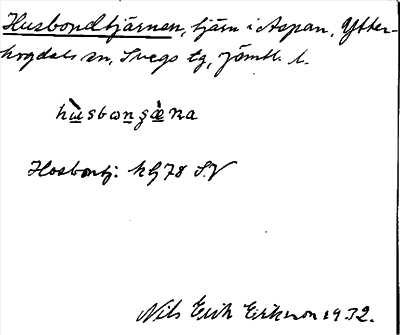 Husbondtjärnen, tjärn i Aspan, Ytter-
hogdals sn, Svegs tg, Jämtl. l.
hùsbωnʂæ̀ɴa
Hosbontj: kG78 S.V
Nils Erik Eriksson 1932.